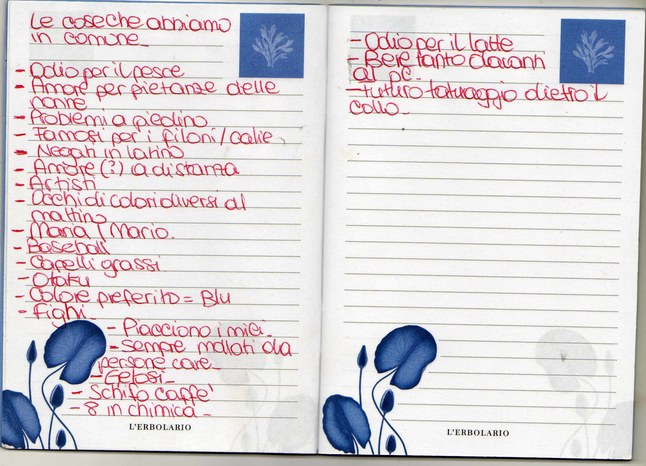 Le cose che abbiamo
in comune_
- Odio per il pesce
- Amore per pietanze delle
nonne
- Problemi a piedino
- Famosi per i filoni/calie
- Negati in latino
- Amore (?) a distanza
- Artisti
- Occhi di colori diversi al
mattino
- Maria / Mario.
- Baseball
- Capelli grassi
- Otaku
- Colore preferito = Blu
- Fighi_
- Piacciono i mici_
- Sempre mollati da
persone care_
- Gelosi_
- Schifo caffe'
- 8 in chimica_
L'ERBOLARIO
- Odio per il latte
- Bere tanto davanti
al pc_
- Futuro tatuaggio dietro il
collo_
L'ERBOLARIO